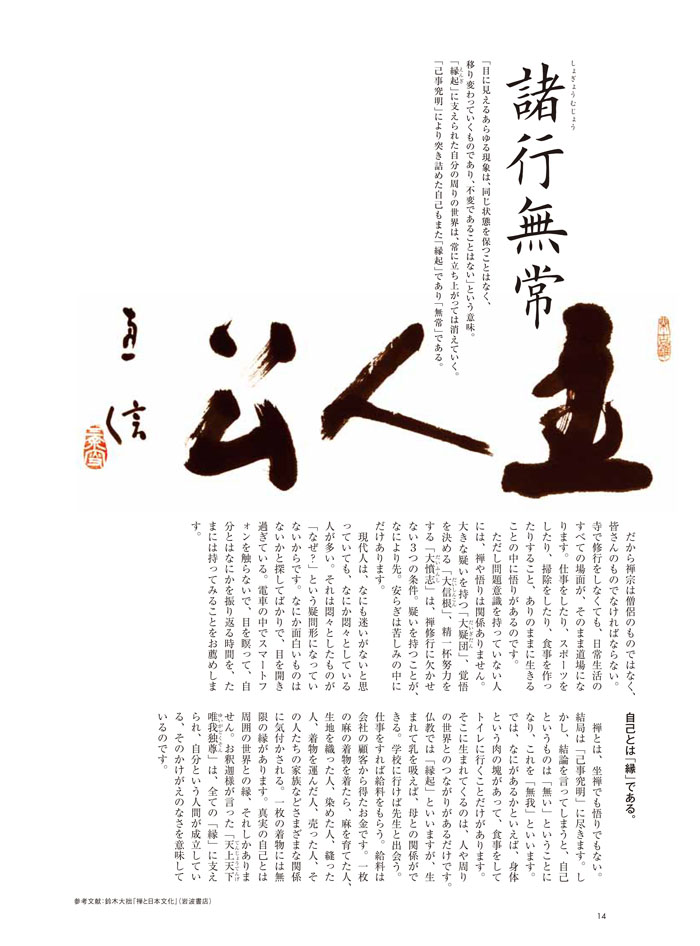 諸行無常
しょぎょうむじょう
「目に見えるあらゆる現象は、同じ状態を保つことはなく、
移り変わっていくものであり、不変であることはない」という意味。
「縁起」に支えられた自分の周りの世界は、常に立ち上がっては消えていく。
「己事究明」により突き詰めた自己もまた「縁起」であり「無常」である。
主人公
だから禅宗は僧侶のものではなく、
皆さんのものでなければならない。
寺で修行をしなくても、日常生活の
すべての場面が、そのまま道場にな
ります。仕事をしたり、スポーツを
したり、掃除をしたり、食事を作っ
たりすること、ありのままに生きる
ことの中に悟りがあるのです。
ただし問題意識を持っていない人
には、禅や悟りは関係ありません。
大きな疑いを持つ「大疑団」、覚悟
を決める「大信根」、精一杯努力を
する「大憤志」は、禅修行に欠かせ
ない3つの条件。疑いを持つことが、
なにより先。安らぎは苦しみの中に
だけあります。
現代人は、なにも迷いがないと思
っていても、なにか悶々としている
人が多い。それは悶々としたものが
「なぜ?」という疑問形になってい
ないからです。なにか面白いものは
ないかと探してばかりで、目を開き
過ぎている。電車の中でスマートフ
ォンを触らないで、目を瞑って、自
分とはなにかを振り返る時間を、た
まには持ってみることをお薦めしま
す。
自己とは「縁」である。
禅とは、坐禅でも悟りでもない。
結局は「己事究明」に尽きます。し
かし、結論を言ってしまうと、自己
というものは「無い」ということに
なり、これを「無我」といいます。
では、なにがあるかといえば、身体
という肉の塊があって、食事をして
トイレに行くことだけがあります。
そこに生まれてくるのは、人や周り
の世界とのつながりがあるだけです。
仏教では「縁起」といいますが、生
まれて乳を吸えば、母との関係がで
きる。学校に行けば先生と出会う。
仕事をすれば給料をもらう。給料は
会社の顧客から得たお金です。一枚
の麻の着物を着たら、麻を育てた人、
生地を織った人、染めた人、縫った
人、着物を運んだ人、売った人、そ
の人たちの家族などさまざまな関係
に気付かされる。一枚の着物には無
限の縁があります。真実の自己とは
周囲の世界との縁、それしかありま
せん。お釈迦様が言った「天上天下
唯我独尊」は、全ての「縁」に支え
られ、自分という人間が成立してい
る、そのかけがえのなさを意味して
いるのです。
参考文献：鈴木大拙『禅と日本文化』（岩波書店）
14